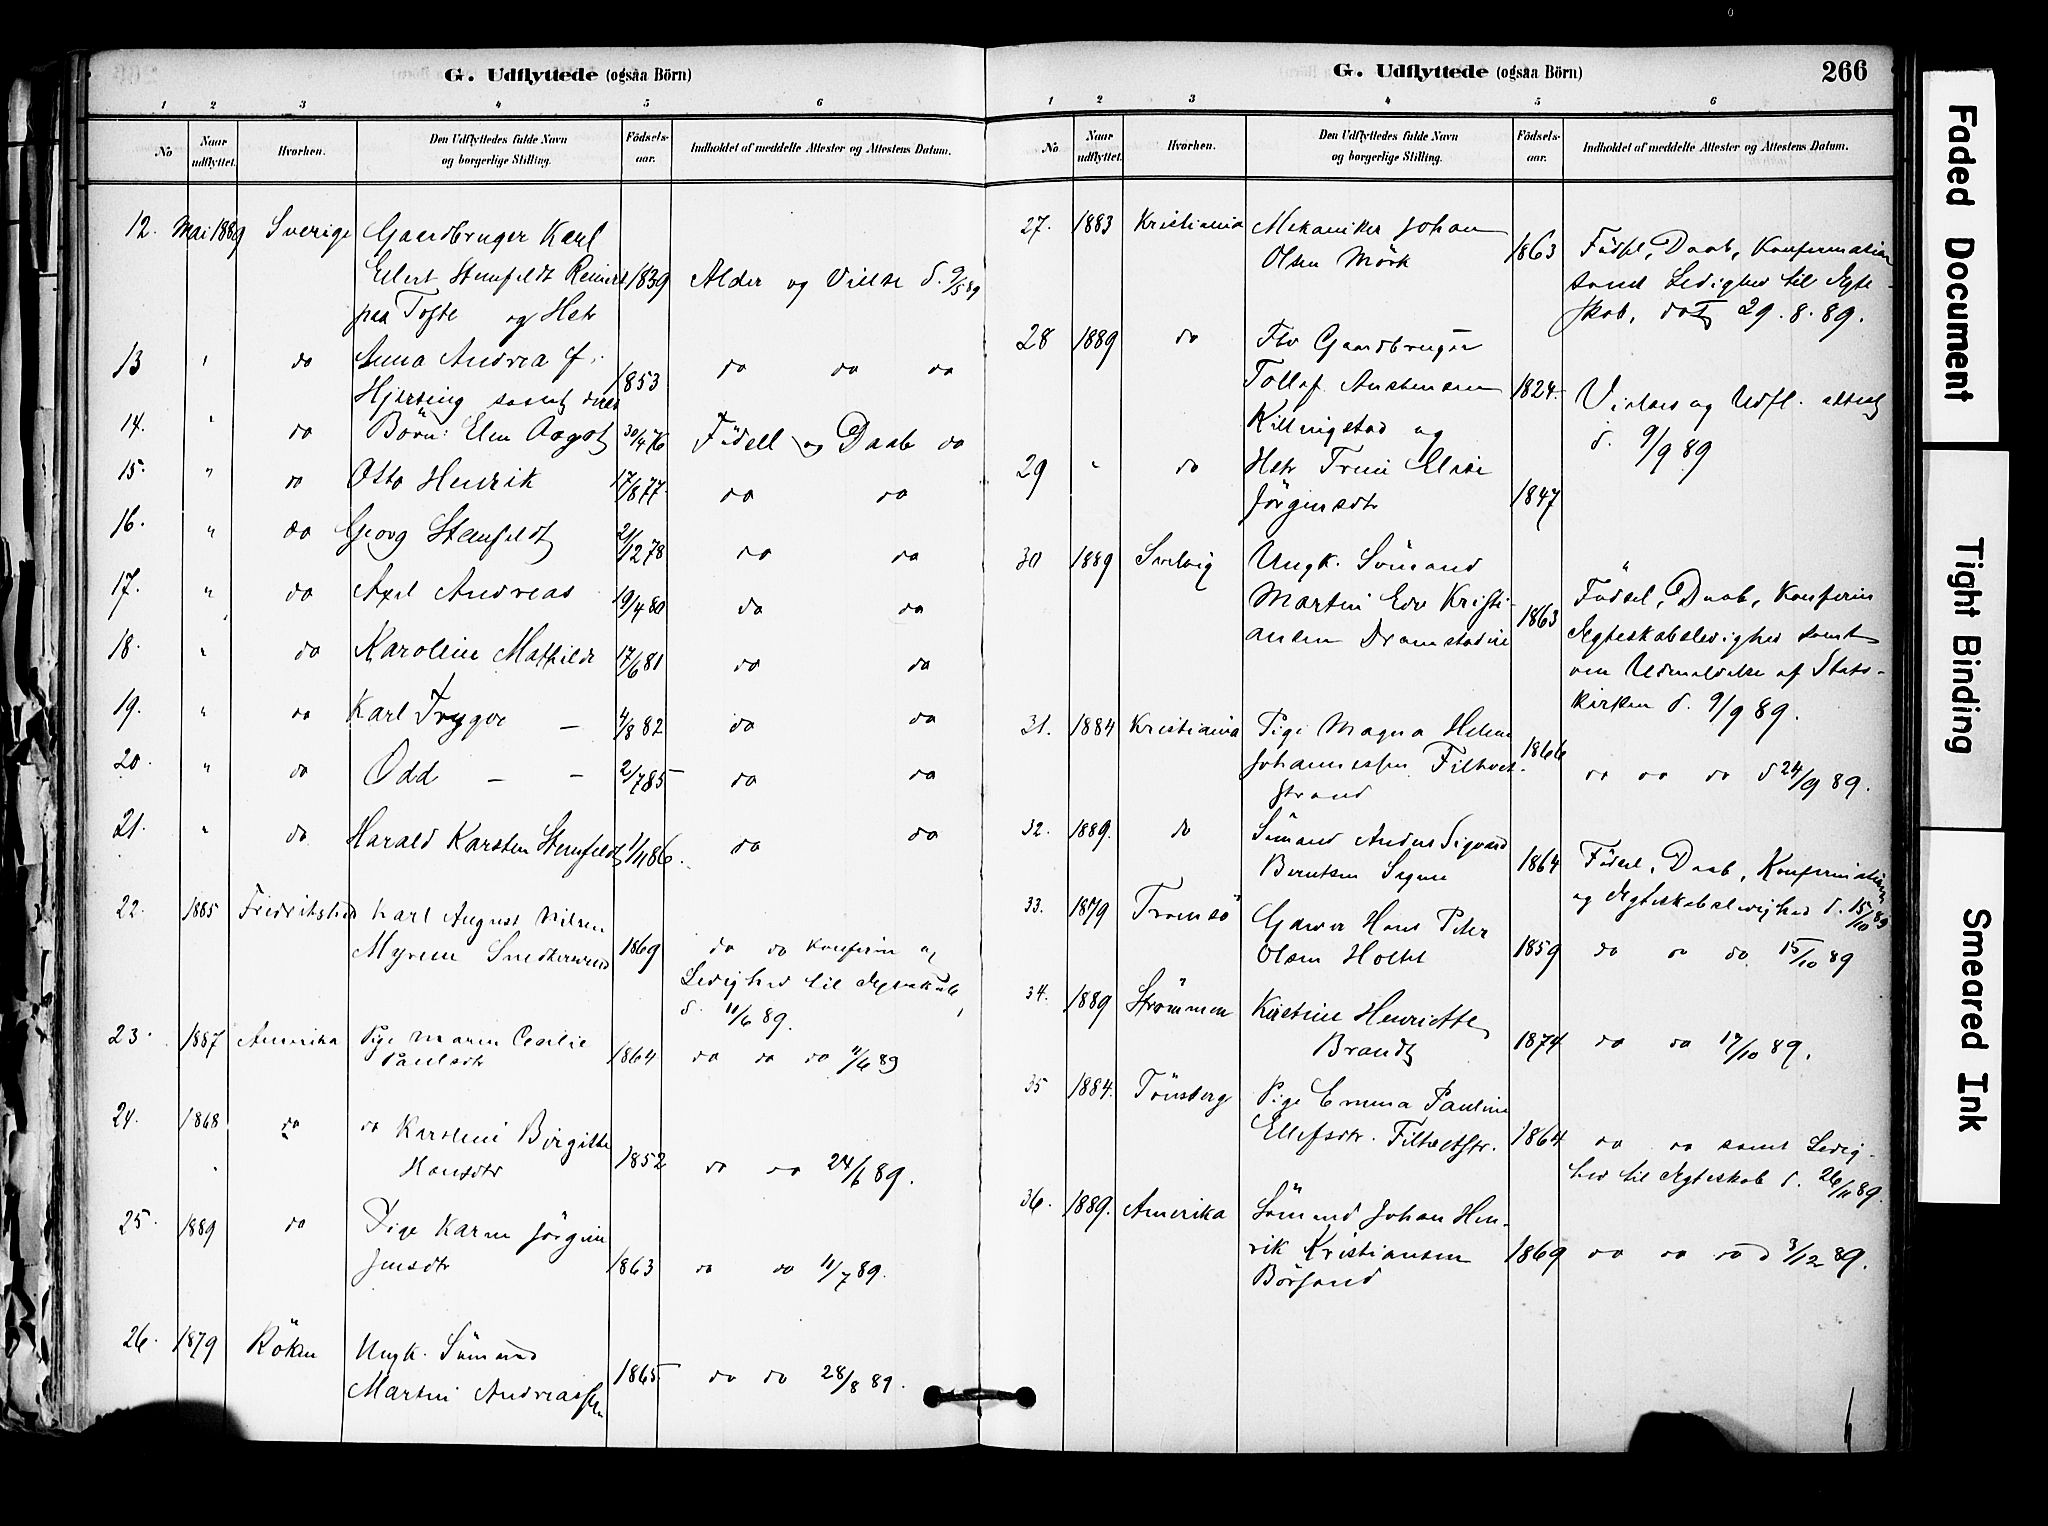 G. Udflyttede (ogsaa Börn)
1 2 3 4 5 6
No Naar udflyttet. Hvorhen. Den Udflyttedes fulde Navn og borgerlige Stilling. Födsels-aar. Indholdet af meddelte Attester og Attestens Datum.
12. Mai 1889 Sverige Gaardbruger Karl
Eilert Stenfeldt Reinert 1839 Alder og Vielse d. 9/5 89
paa Tofte og Hstr
13 " do Anna Andrea f.
Hjersing samt deres 1853 do do do
14. " do Börn: Elen Aagot 30/4 76 Födsel og Daab do
15. " do Otto Henrik 17/8 77 do do
16. " do Georg Stenfeldt 21/12 78 do do
17. " do Axel Andreas 19/4 80 do do
18. " do Karoline Mathilde 17/6 81 do do
19. " do Karl Trygve — 4/8 82 do do
20. " do Odd — — 2/7 85 do do
21. " do Harald Karsten Stenfeldt 1/11 86. do do
22. 1885 Fredrikstad Karl August Nilsen
Myrene Snedkersvend 1869 do do Konfirm og
Ledighed til Ægteskab,
d. 11/6 89.
23. 1887 Amerika Pige Maren Cecilie
Paulsdtr 1864 do do do 11/6 89
24. 1868 do do Karoline Birgitte
Hansdtr 1852 do do 24/6 89.
25. 1889 do Pige Karen Jörgine
Jensdtr 1863 do do 11/7 89.
26. 1879 Röken Ungk. Sömand
Martin Andreassen 1865 do do 28/8 89.
G. Udflyttede (ogsaa Börn) 266
1 2 3 4 5 6
No Naar udflyttet. Hvorhen. Den Udflyttedes fulde Navn og borgerlige Stilling. Födsels-aar. Indholdet af meddelte Attester og Attestens Datum.
27. 1883 Kristiania Mekaniker Johan
Olsen Mörk 1863 Födsel, Daab, Konfirmation
samt Ledighed til Ægte-
skab, dat 29.8.89.
28 1889 do Fhv Gaardbruger
Tollef Austensen 1824. Vielses og Udfl. attest
Killingstad og d. 9/9 89
29 " do Hstr Trine Elise
Jörgensdtr 1847
30 1889 Svelvig Ungk. Sömand
Martin Edv Kristi- 1863 Födsel, Daab, Konfirm
ansen Dramstadeie Ægteskabsledighed samt
om Udmeldelse af Stats-
kirken d. 9/9 89.
31. 1884 Kristiania Pige Magna Helene
Johannessen Filtvet- 1866 do do do d 24/9 89.
strand
32. 1889. do Sömand Anders Sigvard
Berntsen Sagene 1864 Födsel, Daab, Konfirmation
og Ægteskabsledighed d. 15/10 89
33. 1879 Tromsö Garver Hans Peter
Olsen Holtet 1859 do do do 15/10 89
34. 1889 Strömmen Kirstine Henriette
Brandt 1874 do do 17/10 89.
35 1884. Tönsberg Pige Emma Pauline
Ellefsdtr. Filtvetstr. 1864 do do samt Ledig-
hed til Ægteskab d. 26/11 89.
36. 1889. Amerika Sömand Johan Hen-
rik Kristiansen 1869 do do do d 3/12 89.
Börsand
Faded Document
Tight Binding
Smeared Ink